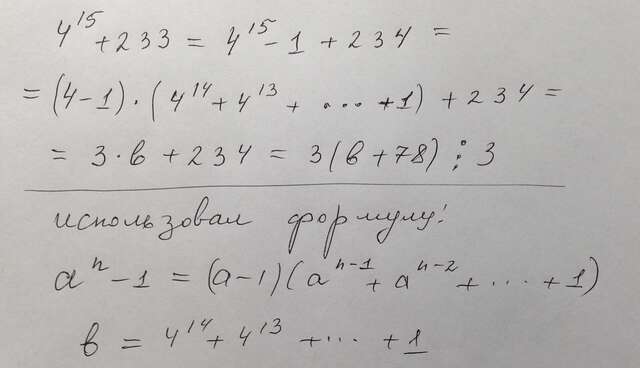 4¹⁵ + 233 = 4¹⁵ - 1 + 234 =
= (4-1)·(4¹⁴ + 4¹³ + ... + 1) + 234 =
= 3·в + 234 = 3(в + 78) ⋮ 3
использовал формулу!
aⁿ - 1 = (a-1)(aⁿ⁻¹ + aⁿ⁻² + ... + 1)
в = 4¹⁴ + 4¹³ + ... + 1